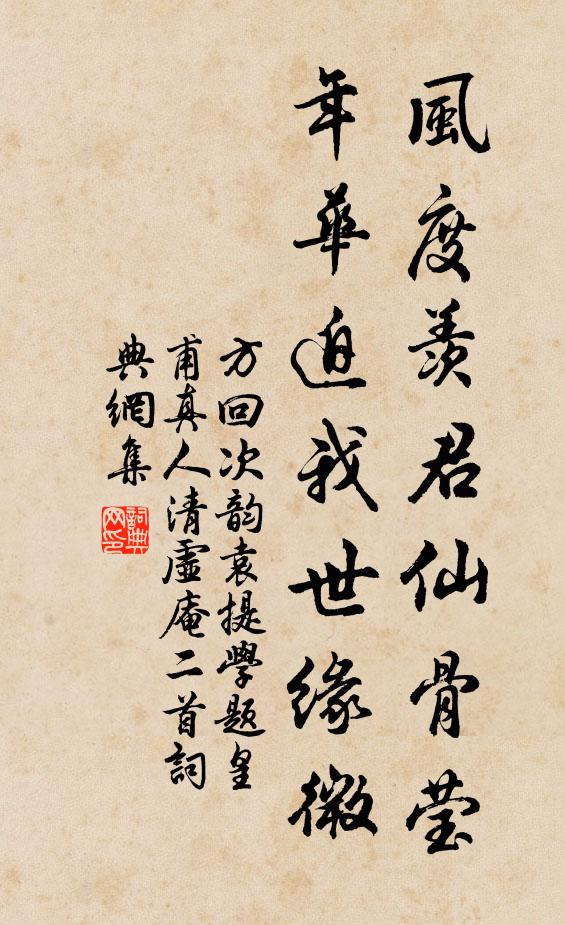 風度羨君仙骨瑩
年華迫我世緣微
方回次韵袁提學題皇
甫真人清虛庵二首詞
典網集
詞典網印